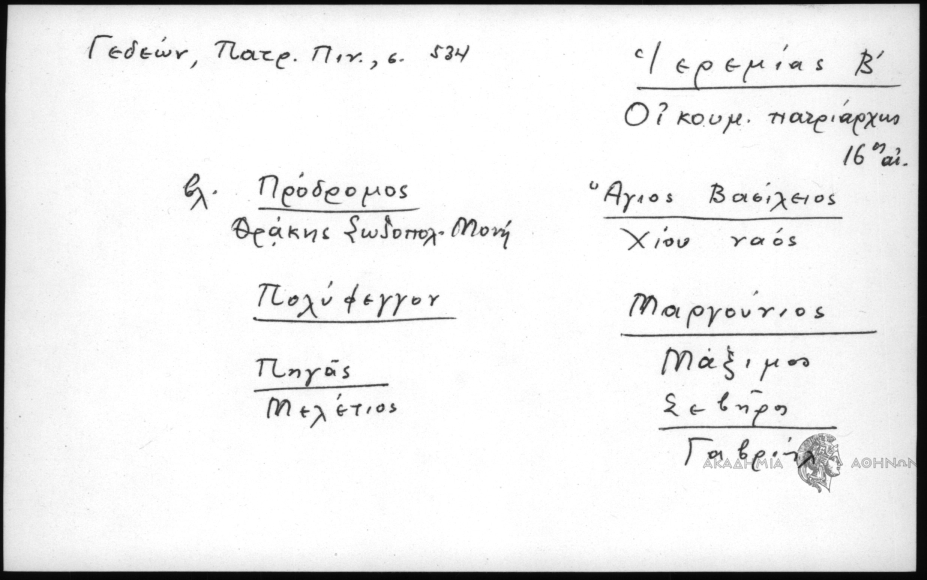 Γεδεών, Πατρ. Πιν., σ. 534
Ἱερεμίας Β'
Οἰκουμ. πατριάρχης
16ος αἰ.
βλ. Πρόδρομος
Θράκης Σωζοπολ. Μονή
Πολύφεγγον
Πηγᾶς
Μελέτιος
Ἅγιος Βασίλειος
Χίου ναός
Μαργούνιος
Μάξιμος
Σεβῆρος
Γαβριήλ
ΑΚΑΔΗΜΙΑ ΑΘΗΝΩΝ